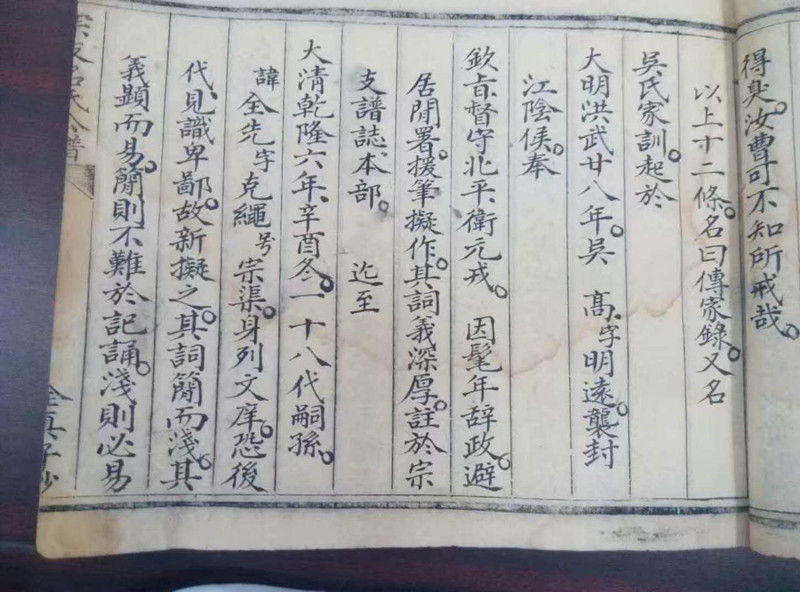 得臭。汝曹可不知所戒哉。
以上十二條。名曰傳家錄。又名
吳氏家訓。起於
大明洪武廿八年。吳 高。字明遠。襲封
江陰侯。奉
欽㫖督守北平衛元戎。 因髦年辞政。避
居閒署。援筆擬作。其詞義深厚。註於宗
支譜誌本部。 迄至
大清乾隆六年、辛酉冬。一十八代嗣孫。
諱全先字克繩号宗渠。身列文庠。恐後
代見識卑鄙。故新擬之。其詞簡而淺。其
義顯而易。簡則不難於記誦。淺則必易